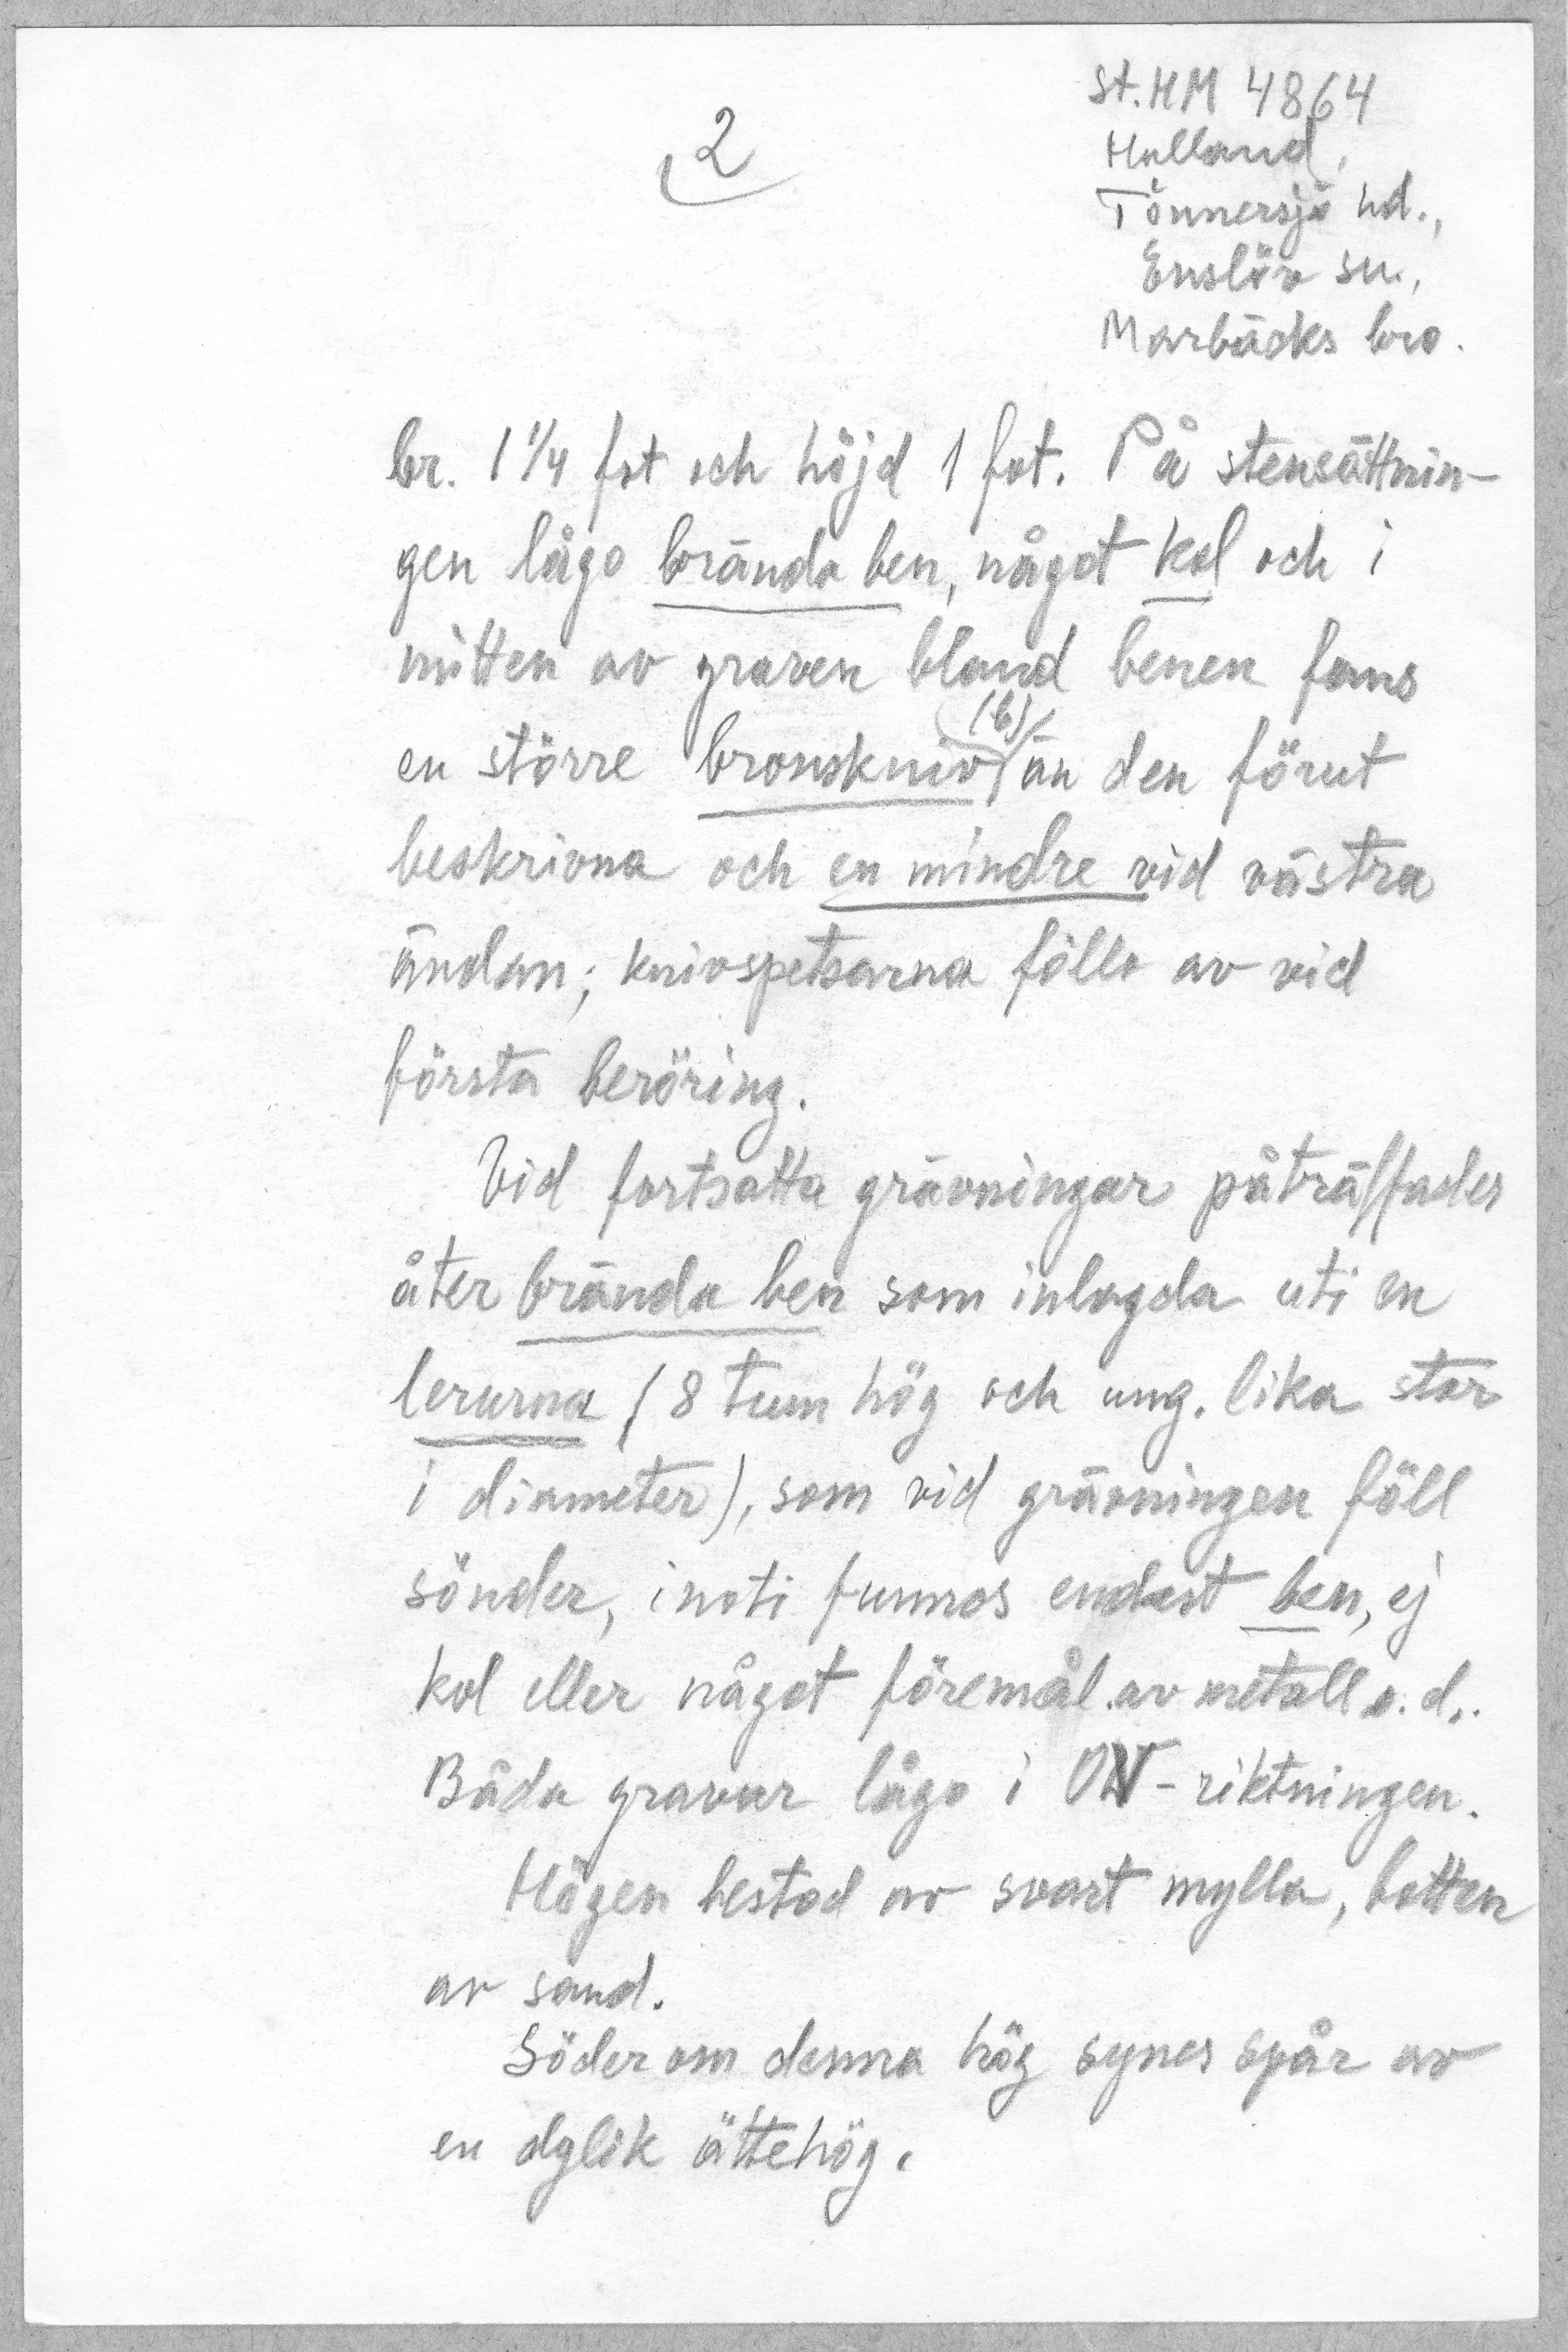 2
St. HM 4864
Halland,
Tönnersjö hd.,
Enslöv sn.,
Marbäcks bro.
br. 1 1/4 fot och höjd 1 fot. På stensättnin-
gen lågo brända ben, något kol och i
mitten av graven bland benen fans
en större bronskniv (b) än den förut
beskrivna och en mindre vid västra
ändan; knivspetsarna föllo av vid
första beröring.
Vid fortsatta grävningar påträffades
åter brända ben som inlagda uti en
lerurna (8 tum hög och ung. lika stor
i diameter), som vid grävningen föll
sönder, inuti funnos endast ben, ej
kol eller något föremål av metall o. d..
Båda gravar lågo i OV-riktningen.
Högen bestod av svart mylla, botten
av sand.
Söder om denna hög synes spår av
en dylik ättehög.